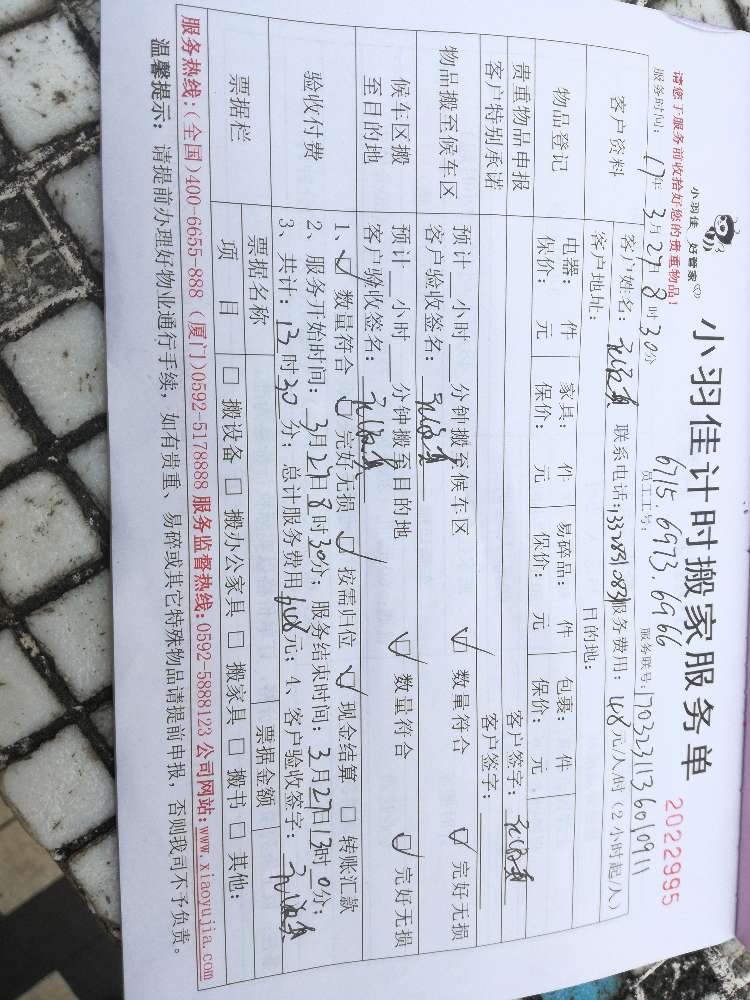 小羽佳 好管家
小羽佳计时搬家服务单
2022995
请您于服务前收拾好您的贵重物品！
员工工号：6715.6973.6966
服务时间：17年3月27日8时30分
服务联号：1703231136010911
客户资料
客户姓名： 联系电话： 服务费用：48元/人/时（2小时起/人）
客户地址： 目的地：
物品登记
电器： 件 家具： 件 易碎品： 件 包裹： 件
保价： 元 保价： 元 保价： 元 保价： 元
贵重物品申报 客户签字：
客户特别承诺 客户签字：
物品搬至候车区
预计 小时 分钟搬至候车区 ☑ 数量符合 ☑ 完好无损
客户验收签名：
候车区搬至目的地
预计 小时 分钟搬至目的地 ☑ 数量符合 ☑ 完好无损
客户验收签名：
验收付费
1、☑ 数量符合 ☑ 完好无损 ☑ 按需归位 ☑ 现金结算 □ 转账汇款
2、服务开始时间：3月27日8时30分；服务结束时间：3月27日13时0分；
3、共计：13时30分；总计服务费用 元；4、客户验收签字：
票据栏
票据名称 票据金额
项 目 □ 搬设备 □ 搬办公家具 □ 搬家具 □ 搬书 □ 其他：
服务热线：(全国)400-6655-888 (厦门)0592-5178888 服务监督热线：0592-5888123 公司网站：www.xiaoyujia.com
温馨提示：请提前办理好物业通行手续，如有贵重、易碎或其它特殊物品请提前申报，否则我司不予负责。